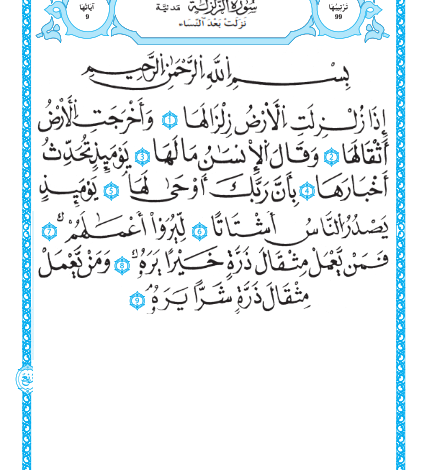 ترتيبها 99 سُورَةُ الزَّلْزَلَةِ مَدَنِيَّة آياتها 9
نَزَلَتْ بَعْدَ النِّسَاء
بِسْمِ اللَّهِ الرَّحْمَٰنِ الرَّحِيمِ
إِذَا زُلْزِلَتِ اِ۬لْأَرْضُ زِلْزَالَهَا 1 وَأَخْرَجَتِ اِ۬لْأَرْضُ
أَثْقَالَهَا 2 وَقَالَ اَ۬لْإِنسَٰنُ مَا لَهَا 3 يَوْمَئِذٍ تُحَدِّثُ
أَخْبَارَهَا 4 بِأَنَّ رَبَّكَ أَوْحَىٰ لَهَا 5 يَوْمَئِذٍ
يَصْدُرُ اُ۬لنَّاسُ أَشْتَاتًا 6 لِّيُرَوْاْ أَعْمَٰلَهُمْ 7
فَمَنْ يَّعْمَلْ مِثْقَالَ ذَرَّةٍ خَيْرًا يَرَهُۥ 8 وَمَنْ يَّعْمَلْ
مِثْقَالَ ذَرَّةٍ شَرًّا يَرَهُۥ 9